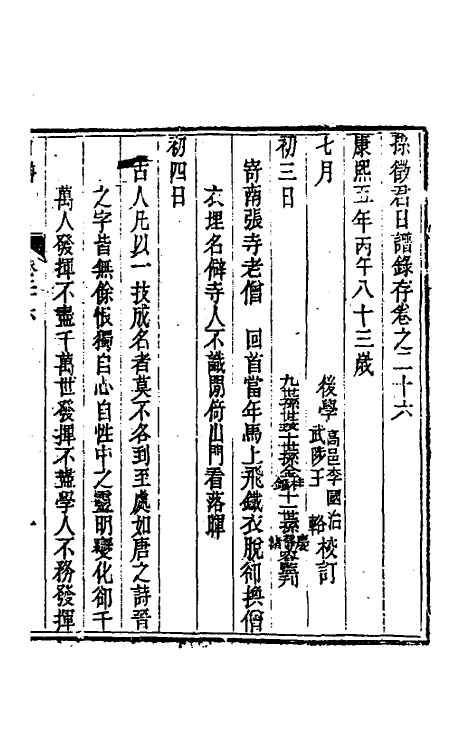 孫徵君日譜錄存卷之二十六
康熙五年丙午八十三歲
後學 高邑李國治 武陟王輅 校訂
七月
初三日
寄南張寺老僧 回首當年馬上飛鐵衣脫卻換僧
衣埋名僻寺人不識閒倚山門看落暉
初四日
古人凡以一技成名者莫不各到至處如唐之詩晉
之字皆無餘恨獨自心自性中之靈明變化卻千
萬人發揮不盡千萬世發揮不盡學人不務發揮
一